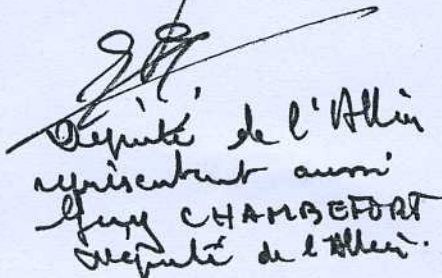 Député de l'Allier
représentant aussi
Guy CHAMBEFORT
député de l'Allier.